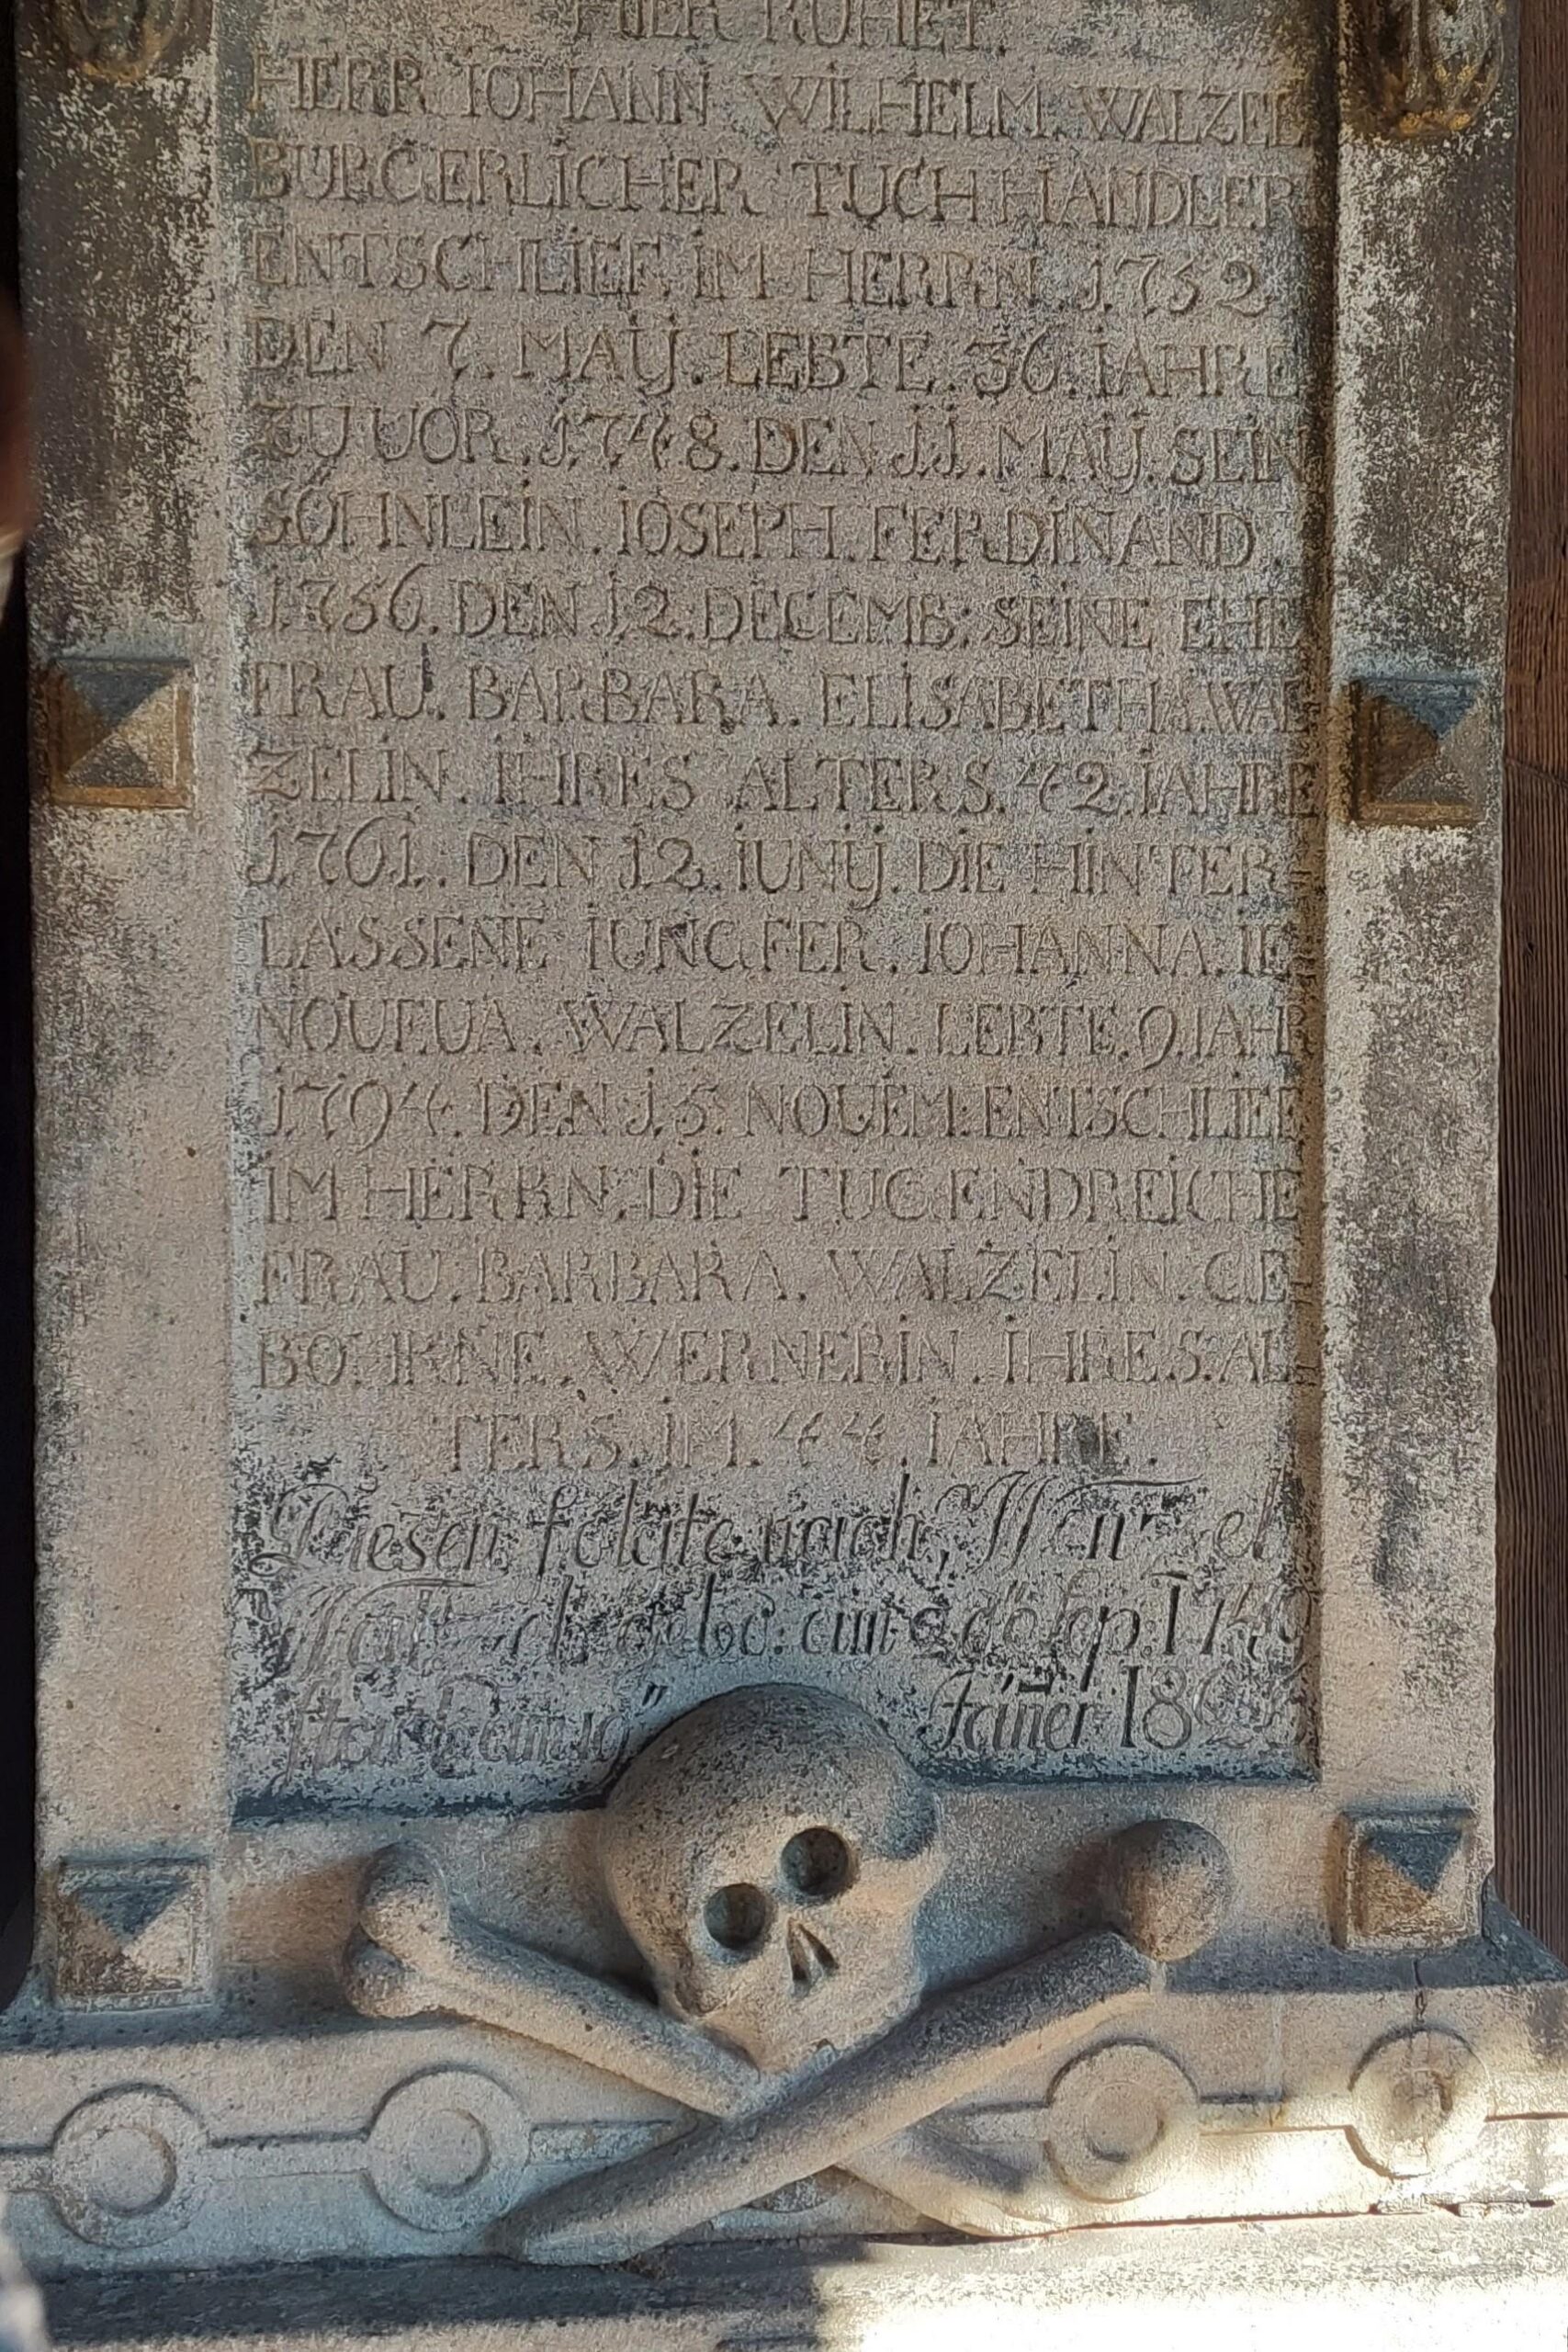 HIER RUHET.
HERR IOHANN WILHELM. WALZEL
BURGERLICHER TUCHHANDLER
ENTSCHLIEF. IM HERRN. 1752
DEN 7. MAӰ. LEBTE. 36. IAHRE
ZUUOR. 1748. DEN 11. MAӰ. SEIN
SÖHNLEIN. IOSEPH. FERDINAND.
1756. DEN 12. DECEMB: SEINE EHE
FRAU. BARBARA. ELISABETHA. WAL
ZELIN. IHRES ALTERS. 42. IAHRE
1761. DEN 12. IUNӰ. DIE HINTER-
LASSENE IUNGFER. IOHANNA. IE
NOUEUA. WALZELIN. LEBTE. 9. IAHR
1794. DEN 15. NOUEM: ENTSCHLIEF
IM HERRN. DIE TUGENDREICHE
FRAU. BARBARA. WALZELIN. GE-
BOHRNE. WERNERIN. IHRES. AL-
TERS. IM. 44. IAHRE.
Diesen folgte nach, Wenzel
Walzel gebo: am sep. 17
starb am Jäner 18